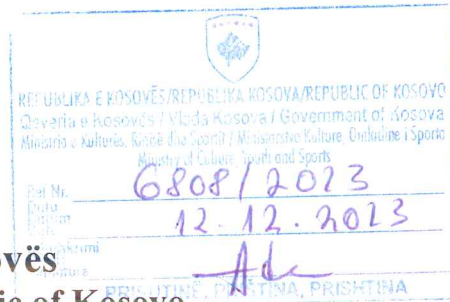 REPUBLIKA E KOSOVËS/REPUBLIKA KOSOVA/REPUBLIC OF KOSOVO
Qeveria e Kosovës / Vlada Kosova / Government of Kosova
Ministria e Kulturës, Rinisë dhe Sportit / Ministarstvo Kulture, Omladine i Sporta
Ministry of Culture, Youth and Sports
Ref Nr. 6808/2023
Data
Datum 12.12.2023
PRISHTINË, PRIŠTINA, PRISHTINA
ovës
ic of Kosovo